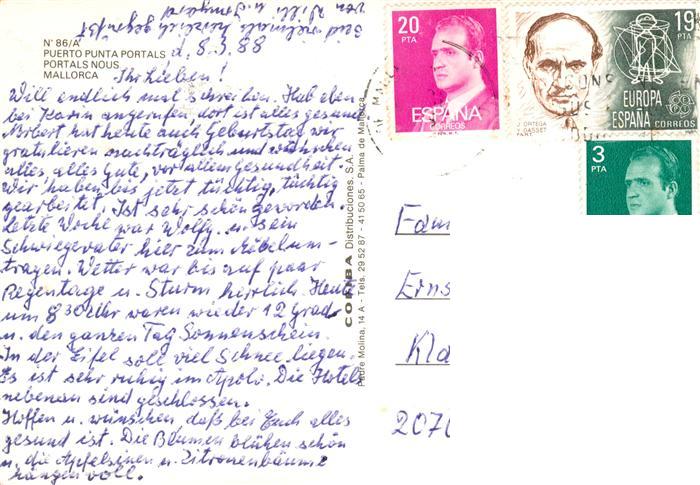 Nº 86/A
PUERTO PUNTA PORTALS
PORTALS NOUS
MALLORCA
d. 8.3.88
Ihr Lieben!
Will endlich mal schreiben. Hab eben
bei Karin angerufen, dort ist alles gesund
Norbert hat heute auch Geburtstag wir
gratulieren nachträglich und wünschen
alles alles Gute, vor allem Gesundheit.
Wir haben bis jetzt tüchtig, tüchtig
gearbeitet. Ist sehr schön geworden.
Letzte Woche war Wolfg. u. sein
Schwiegervater hier zum Möbelum-
tragen. Wetter war bis auf paar
Regentage u. Sturm herrlich. Heute
um 8 30 Uhr waren wieder 12 Grad
u. den ganzen Tag Sonnenschein.
In der Eifel soll viel Schnee liegen.
Es ist sehr ruhig im Apolo. Die Hotels
nebenan sind geschlossen.
Hoffen u. wünschen, daß bei Euch alles
gesund ist. Die Blumen blühen schön
u. die Apfelsinen u. Zitronenbäume
hängen voll.
Seid vielmals herzlich gegrüßt
von Willi u. Irmgard
COMBA Distribuciones, S.A.
Pedro Molina, 14 A - Tels. 29 52 87 - 41 50 65 - Palma de Mallorca
20
PTA
ESPAÑA
CORREOS
19
PTA
EUROPA
ESPAÑA
CORREOS
J. ORTEGA
Y GASSET
3
PTA
Fam
Erns
Kla
2070